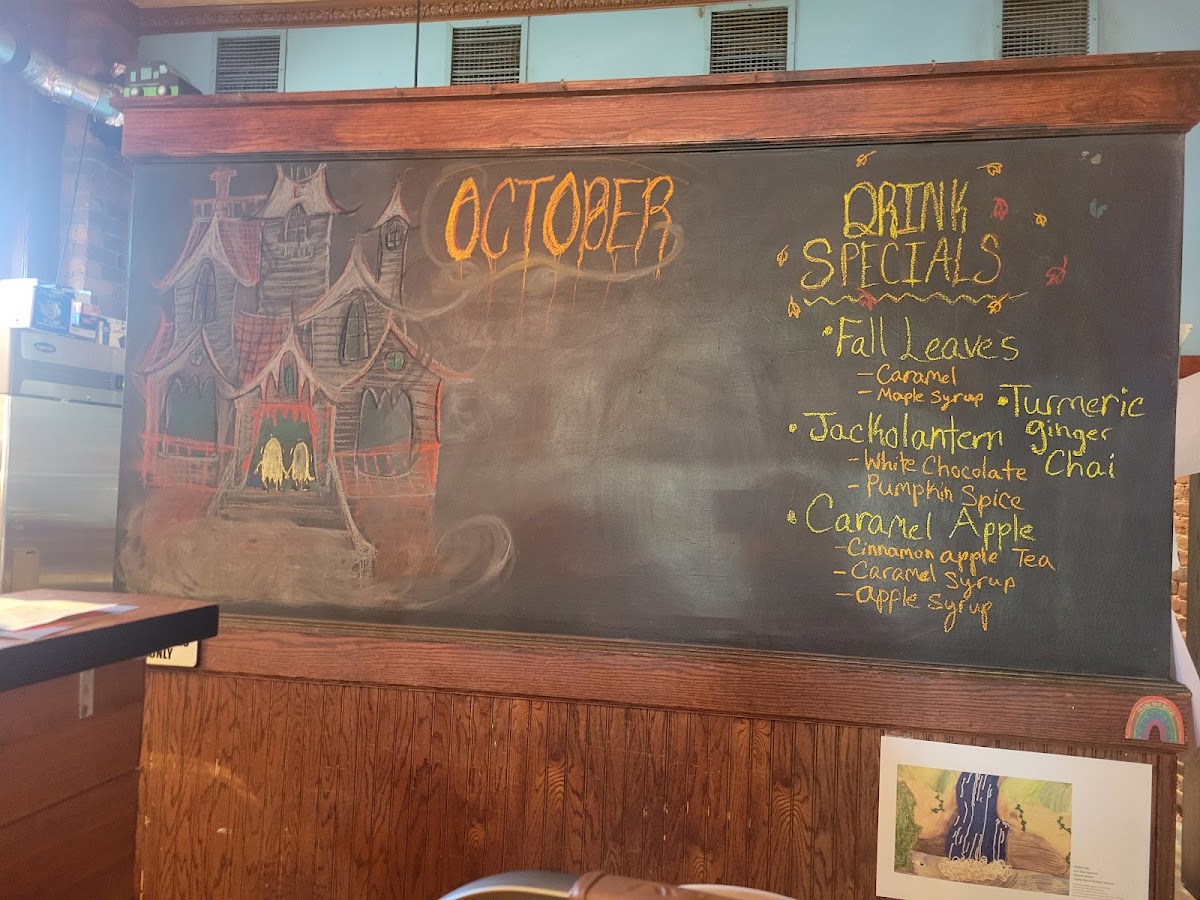 OCTOBER
DRINK
SPECIALS
•Fall Leaves
- Caramel
- Maple Syrup
•Turmeric
ginger
Chai
•Jackolantern
- White Chocolate
- Pumpkin Spice
•Caramel Apple
- Cinnamon apple Tea
- Caramel Syrup
- apple syrup
ONLY